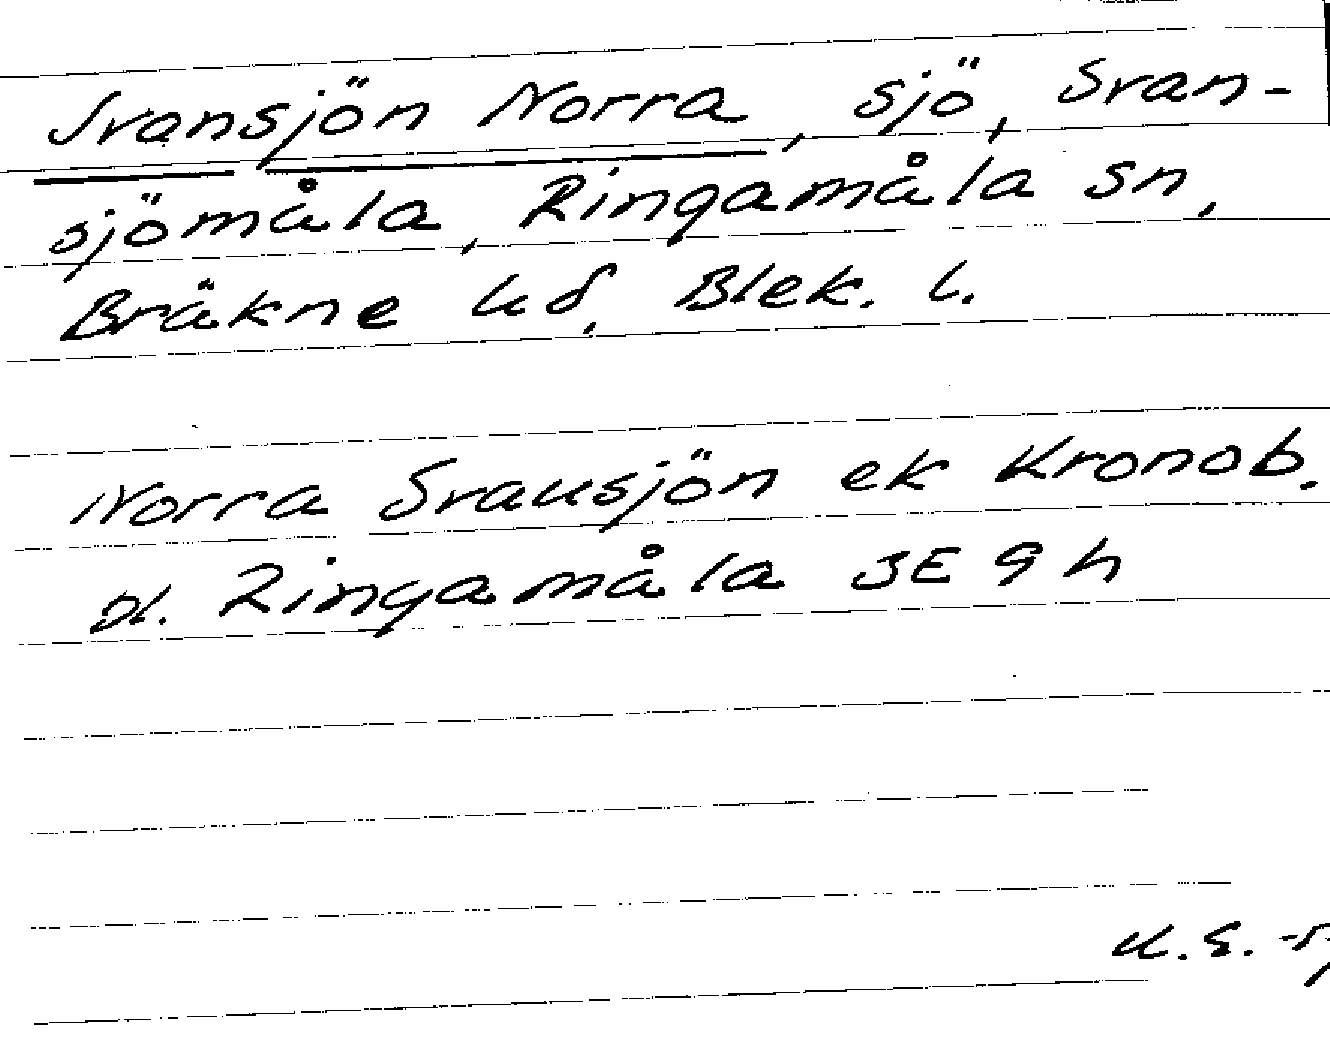 Svansjön Norra, sjö, Svan-
sjömåla, Ringamåla sn,
Bräkne hd, Blek. l.
Norra Svansjön ek Kronob.
Pl. Ringamåla 3E 9h